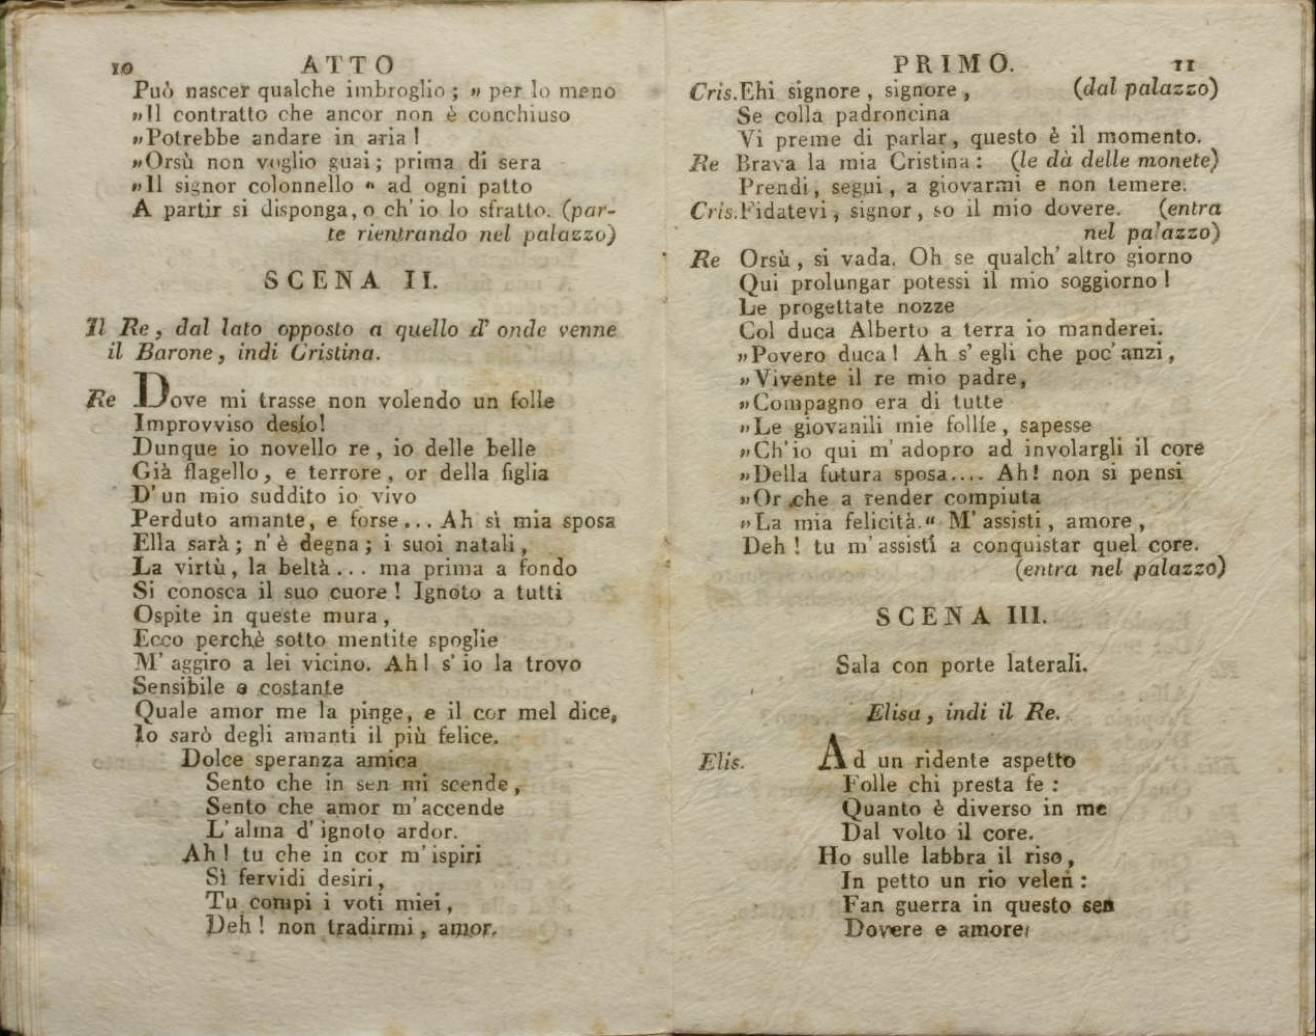 10 ATTO
Può nascer qualche imbroglio ; „ per lo meno
„Il contratto che ancor non è conchiuso
„Potrebbe andare in aria !
„Orsù non voglio guai ; prima di sera
„Il signor colonnello “ ad ogni patto
A partir si disponga, o ch' io lo sfratto. (par-
te rientrando nel palazzo)
SCENA II.
Il Re, dal lato opposto a quello d' onde venne
il Barone, indi Cristina.
Re Dove mi trasse non volendo un folle
Improvviso desio!
Dunque io novello re, io delle belle
Già flagello, e terrore, or della figlia
D' un mio suddito io vivo
Perduto amante, e forse... Ah sì mia sposa
Ella sarà ; n' è degna ; i suoi natali,
La virtù, la beltà... ma prima a fondo
Si conosca il suo cuore ! Ignoto a tutti
Ospite in queste mura,
Ecco perchè sotto mentite spoglie
M' aggiro a lei vicino. Ah! s' io la trovo
Sensibile e costante
Quale amor me la pinge, e il cor mel dice,
Io sarò degli amanti il più felice.
Dolce speranza amica
Sento che in sen mi scende,
Sento che amor m' accende
L' alma d' ignoto ardor.
Ah ! tu che in cor m' ispiri
Sì fervidi desiri,
Tu compi i voti miei,
Deh ! non tradirmi, amor.
PRIMO. 11
Cris. Ehi signore, signore, (dal palazzo)
Se colla padroncina
Vi preme di parlar, questo è il momento.
Re Brava la mia Cristina : (le dà delle monete)
Prendi, segui, a giovarmi e non temere.
Cris. Fidatevi, signor, so il mio dovere. (entra
nel palazzo)
Re Orsù, si vada. Oh se qualch' altro giorno
Qui prolungar potessi il mio soggiorno !
Le progettate nozze
Col duca Alberto a terra io manderei.
„Povero duca ! Ah s' egli che poc' anzi,
„Vivente il re mio padre,
„Compagno era di tutte
„Le giovanili mie follíe, sapesse
„Ch' io qui m' adopro ad involargli il core
„Della futura sposa.... Ah! non si pensi
„Or che a render compiuta
„La mia felicità.“ M' assisti, amore,
Deh ! tu m' assisti a conquistar quel core.
(entra nel palazzo)
SCENA III.
Sala con porte laterali.
Elisa, indi il Re.
Elis. Ad un ridente aspetto
Folle chi presta fe :
Quanto è diverso in me
Dal volto il core.
Ho sulle labbra il riso,
In petto un rio velen :
Fan guerra in questo sen
Dovere e amore: